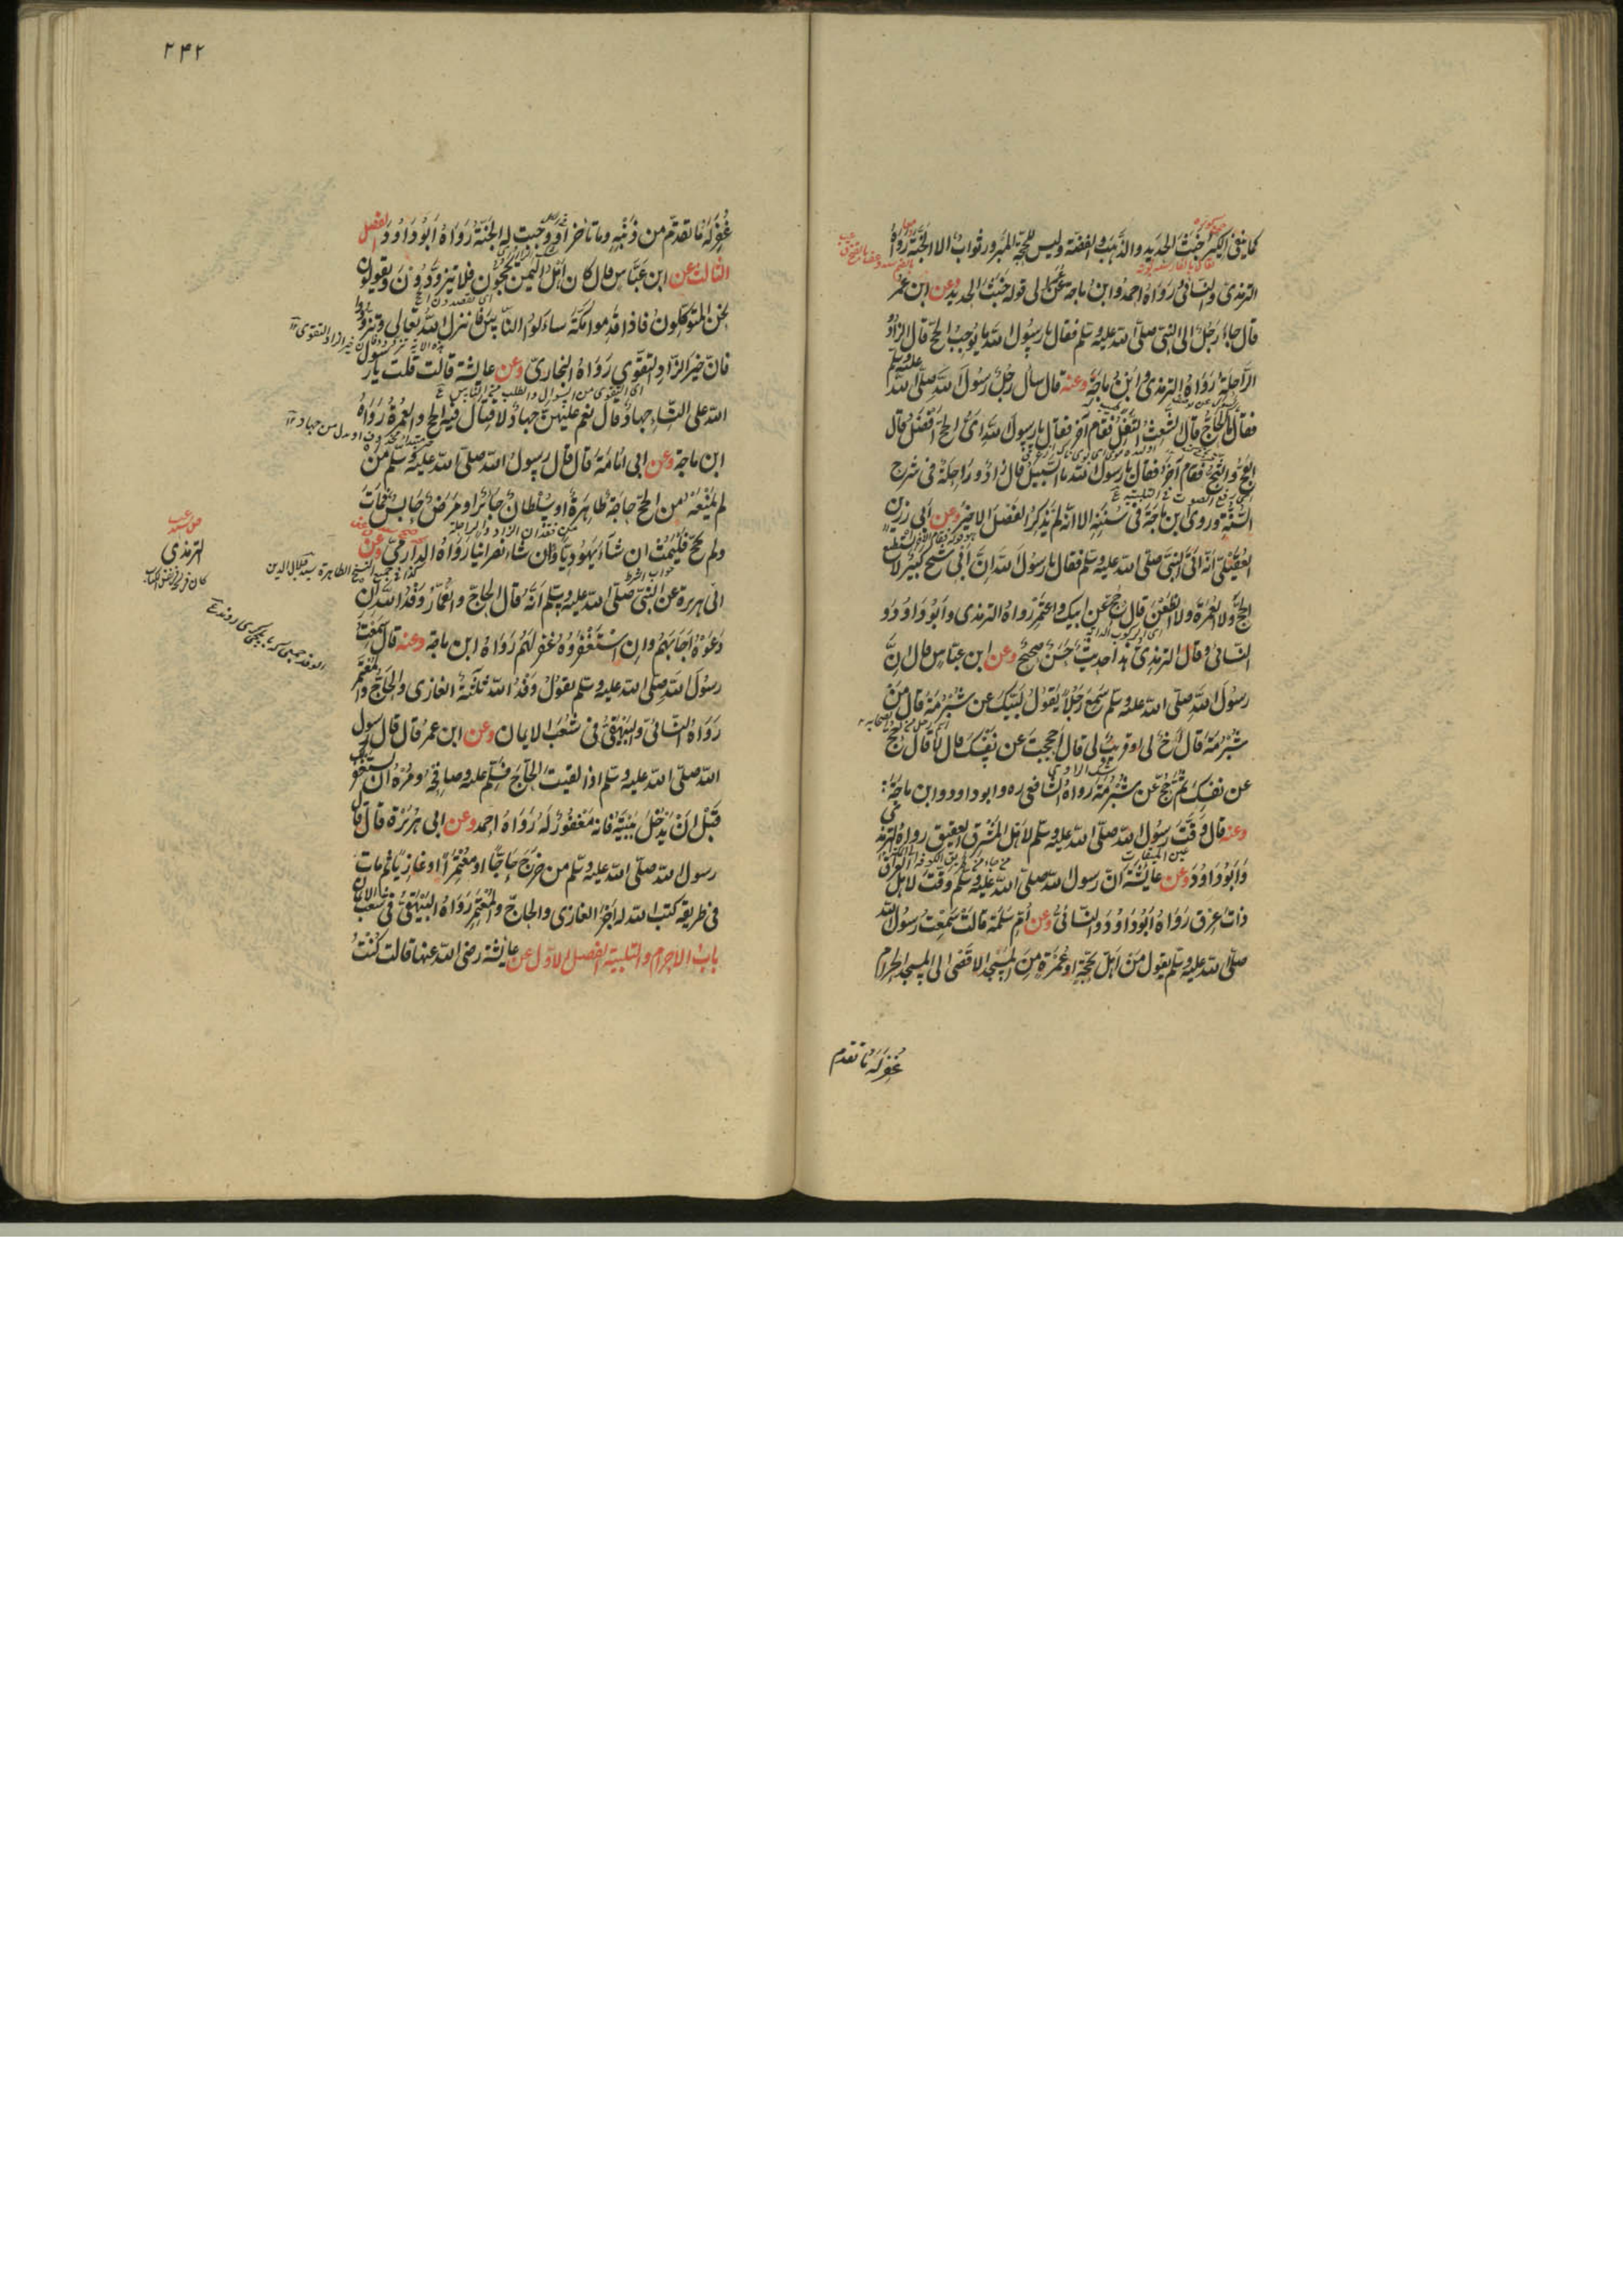 كما ينفى الكير خبث الحديد والذهب والفضة وليس للحجة المبرورة ثواب الا الجنة رواه
الترمذى والنسائى ورواه احمد وابن ماجة عن عمر الى قوله خبث الحديد وعن ابن عمر
قال جاء رجل الى النبى صلى الله عليه وسلم فقال يا رسول الله ما يوجب الحج قال الزاد و
الراحلة رواه الترمذى وابن ماجة وعنه قال سأل رجل رسول الله صلى الله عليه وسلم
فقال ما الحاج قال الشعث التفل فقام آخر فقال يا رسول الله اى الحج افضل قال
العج والثج فقام آخر فقال يا رسول الله ما السبيل قال زاد وراحلة رواه فى شرح
السنة وروى ابن ماجة فى سننه الا انه لم يذكر الفصل الاخير وعن ابى رزين
العقيلى انه اتى النبى صلى الله عليه وسلم فقال يا رسول الله ان ابى شيخ كبير لا يستطيع
الحج ولا العمرة ولا الظعن قال حج عن ابيك واعتمر رواه الترمذى وابو داود و
النسائى وقال الترمذى هذا حديث حسن صحيح وعن ابن عباس قال ان
رسول الله صلى الله عليه وسلم سمع رجلا يقول لبيك عن شبرمة قال من
شبرمة قال اخ لى او قريب لى قال احججت عن نفسك قال لا قال حج
عن نفسك ثم حج عن شبرمة رواه الشافعى ره وابو داود وابن ماجة
وعنه قال وقت رسول الله صلى الله عليه وسلم لاهل المشرق العقيق رواه الترمذى
وابو داود وعن عايشة ان رسول الله صلى الله عليه وسلم وقت لاهل العراق
ذات عرق رواه ابو داود والنسائى وعن ام سلمة قالت سمعت رسول الله
صلى الله عليه وسلم يقول من اهل بحجة او عمرة من المسجد الاقصى الى المسجد الحرام
غفر له ما تقدم
۲۴۲
غفر له ما تقدم من ذنبه وما تأخر او وجبت له الجنة رواه ابو داود الفصل
الثالث عن ابن عباس قال كان اهل اليمن يحجون فلا يتزودون ويقولون
نحن المتوكلون فاذا قدموا مكة سألوا الناس فانزل الله تعالى وتزودوا
فان خير الزاد التقوى رواه البخارى وعن عائشة قالت قلت يا رسول
الله على النساء جهاد قال نعم عليهن جهاد لا قتال فيه الحج والعمرة رواه
ابن ماجة وعن ابى امامة قال قال رسول الله صلى الله عليه وسلم من
لم يمنعه من الحج حاجة ظاهرة او سلطان جائر او مرض حابس فمات
ولم يحج فليمت ان شاء يهوديا وان شاء نصرانيا رواه الدارمى وعن
ابى هريرة عن النبى صلى الله عليه وسلم انه قال الحاج والعمار وفد الله ان
دعوه اجابهم وان استغفروه غفر لهم رواه ابن ماجة وعنه قال سمعت
رسول الله صلى الله عليه وسلم يقول وفد الله ثلثة الغازى والحاج والمعتمر
رواه النسائى والبيهقى فى شعب الايمان وعن ابن عمر قال قال رسول
الله صلى الله عليه وسلم اذا لقيت الحاج فسلم عليه وصافحه ومره ان يستغفر لك
قبل ان يدخل بيته فانه مغفور له رواه احمد وعن ابى هريرة قال قال
رسول الله صلى الله عليه وسلم من خرج حاجا او معتمرا او غازيا ثم مات
فى طريقه كتب الله له اجر الغازى والحاج والمعتمر رواه البيهقى فى شعب الايمان
باب الاحرام والتلبية الفصل الاول عن عايشة رضى الله عنها قالت كنت
الترمذى